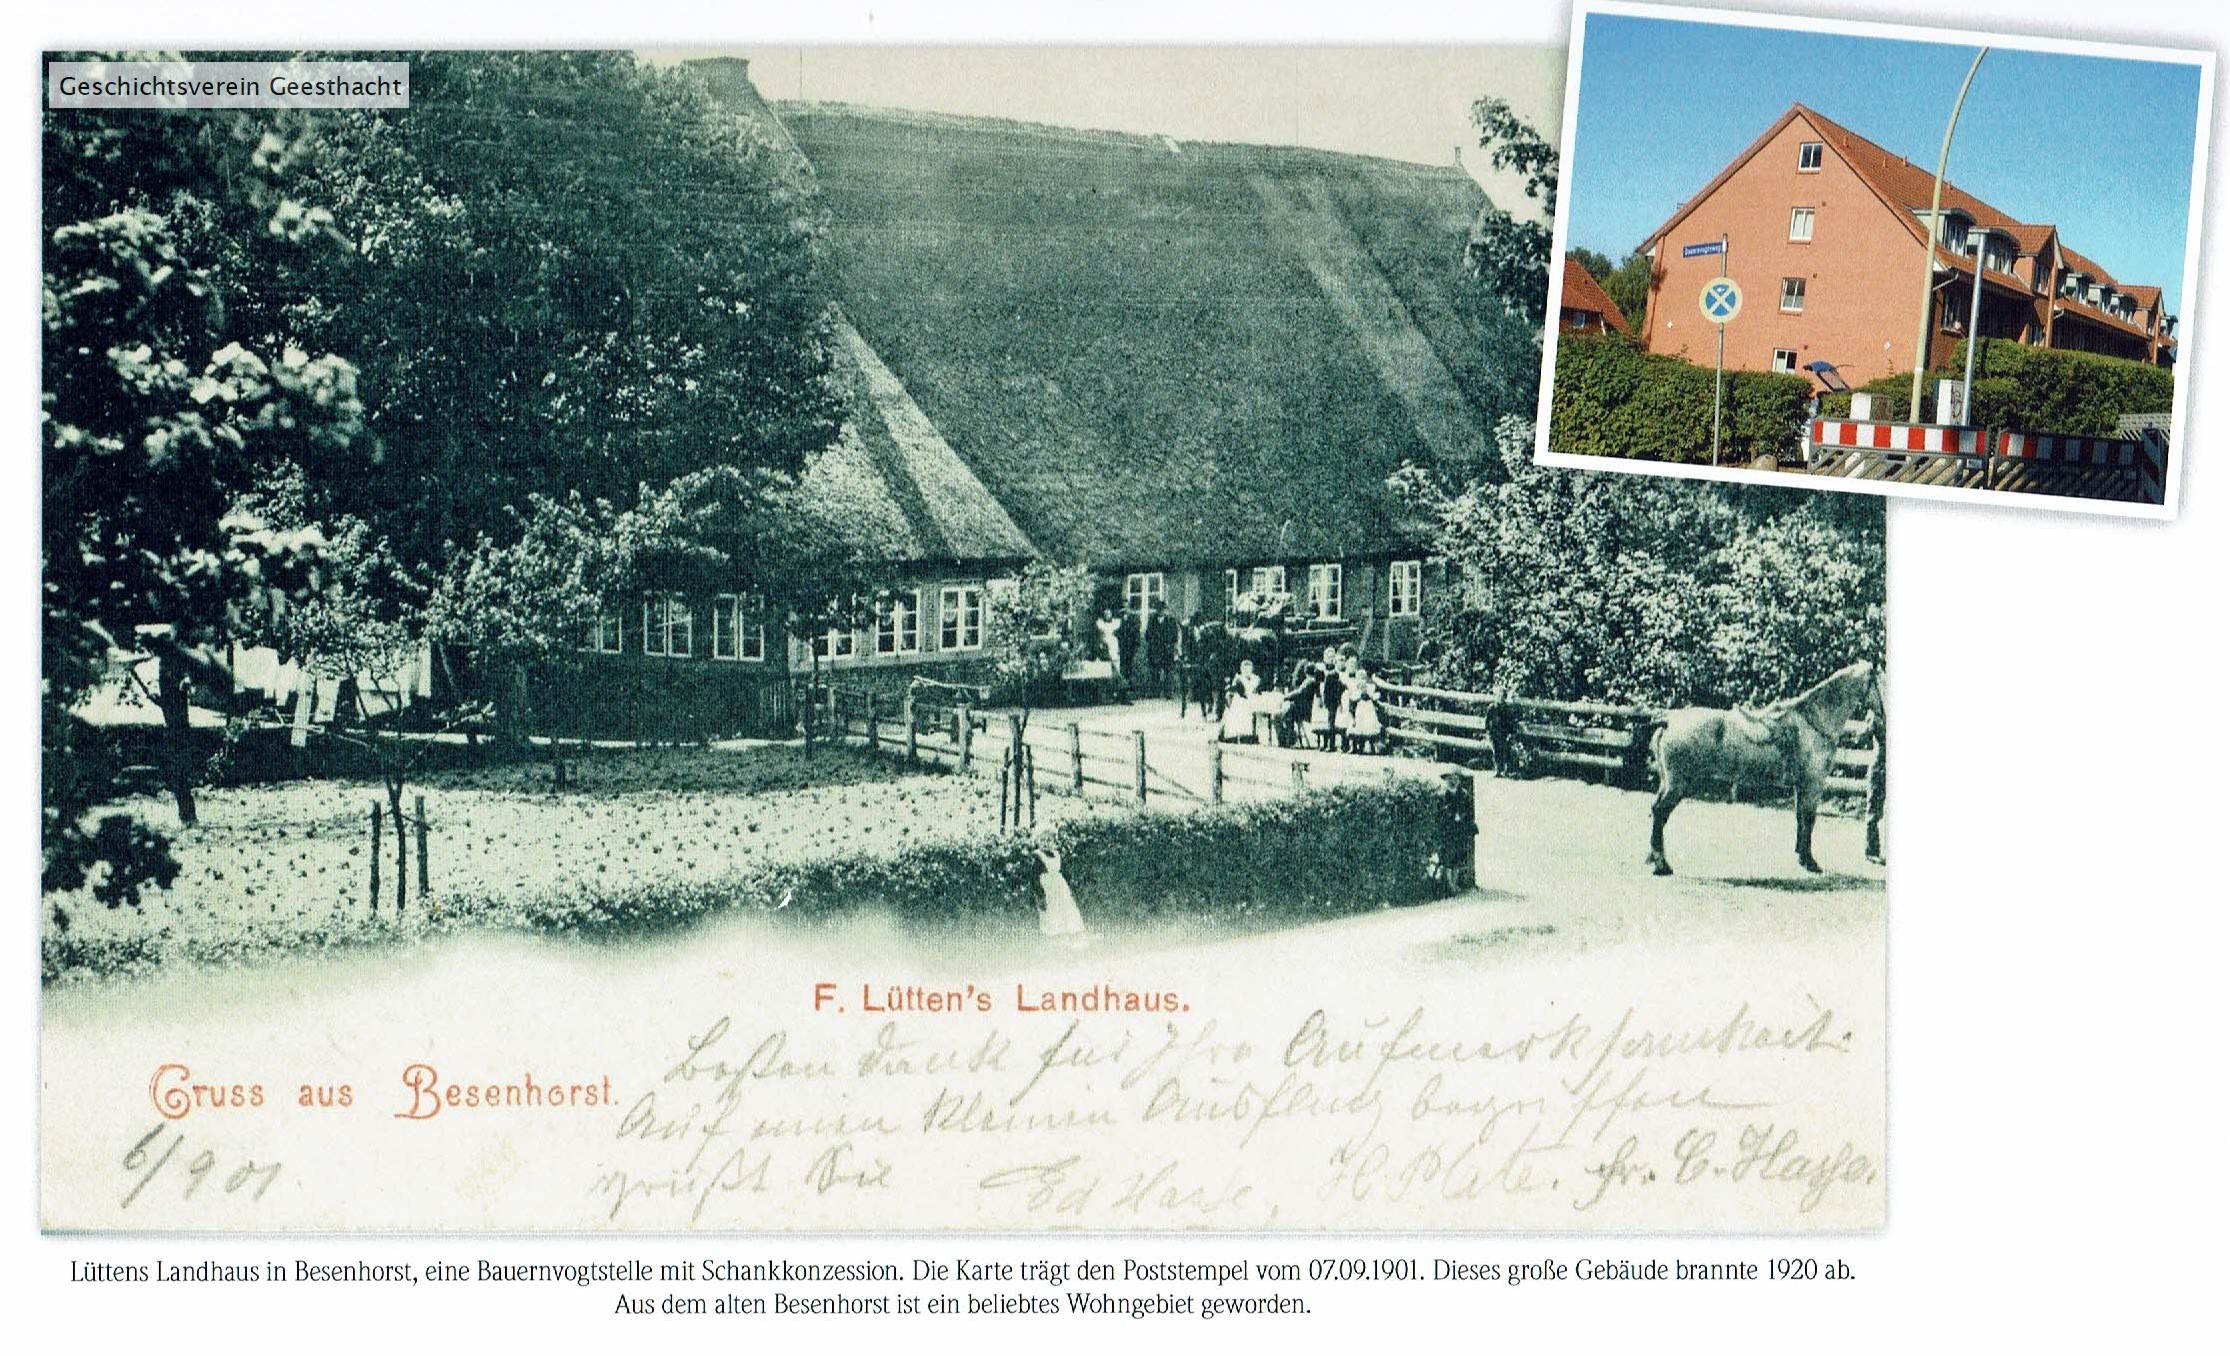 Geschichtsverein Geesthacht
F. Lütten's Landhaus.
Gruss aus Besenhorst.
Besten Dank für Ihre Aufmerksamkeit.
Auf einen kleinen Ausflug begriffen
grüßt Sie Ed Hasse, H. Plate. Fr. C. Hasse.
6/9 01
Lüttens Landhaus in Besenhorst, eine Bauernvogtstelle mit Schankkonzession. Die Karte trägt den Poststempel vom 07.09.1901. Dieses große Gebäude brannte 1920 ab.
Aus dem alten Besenhorst ist ein beliebtes Wohngebiet geworden.